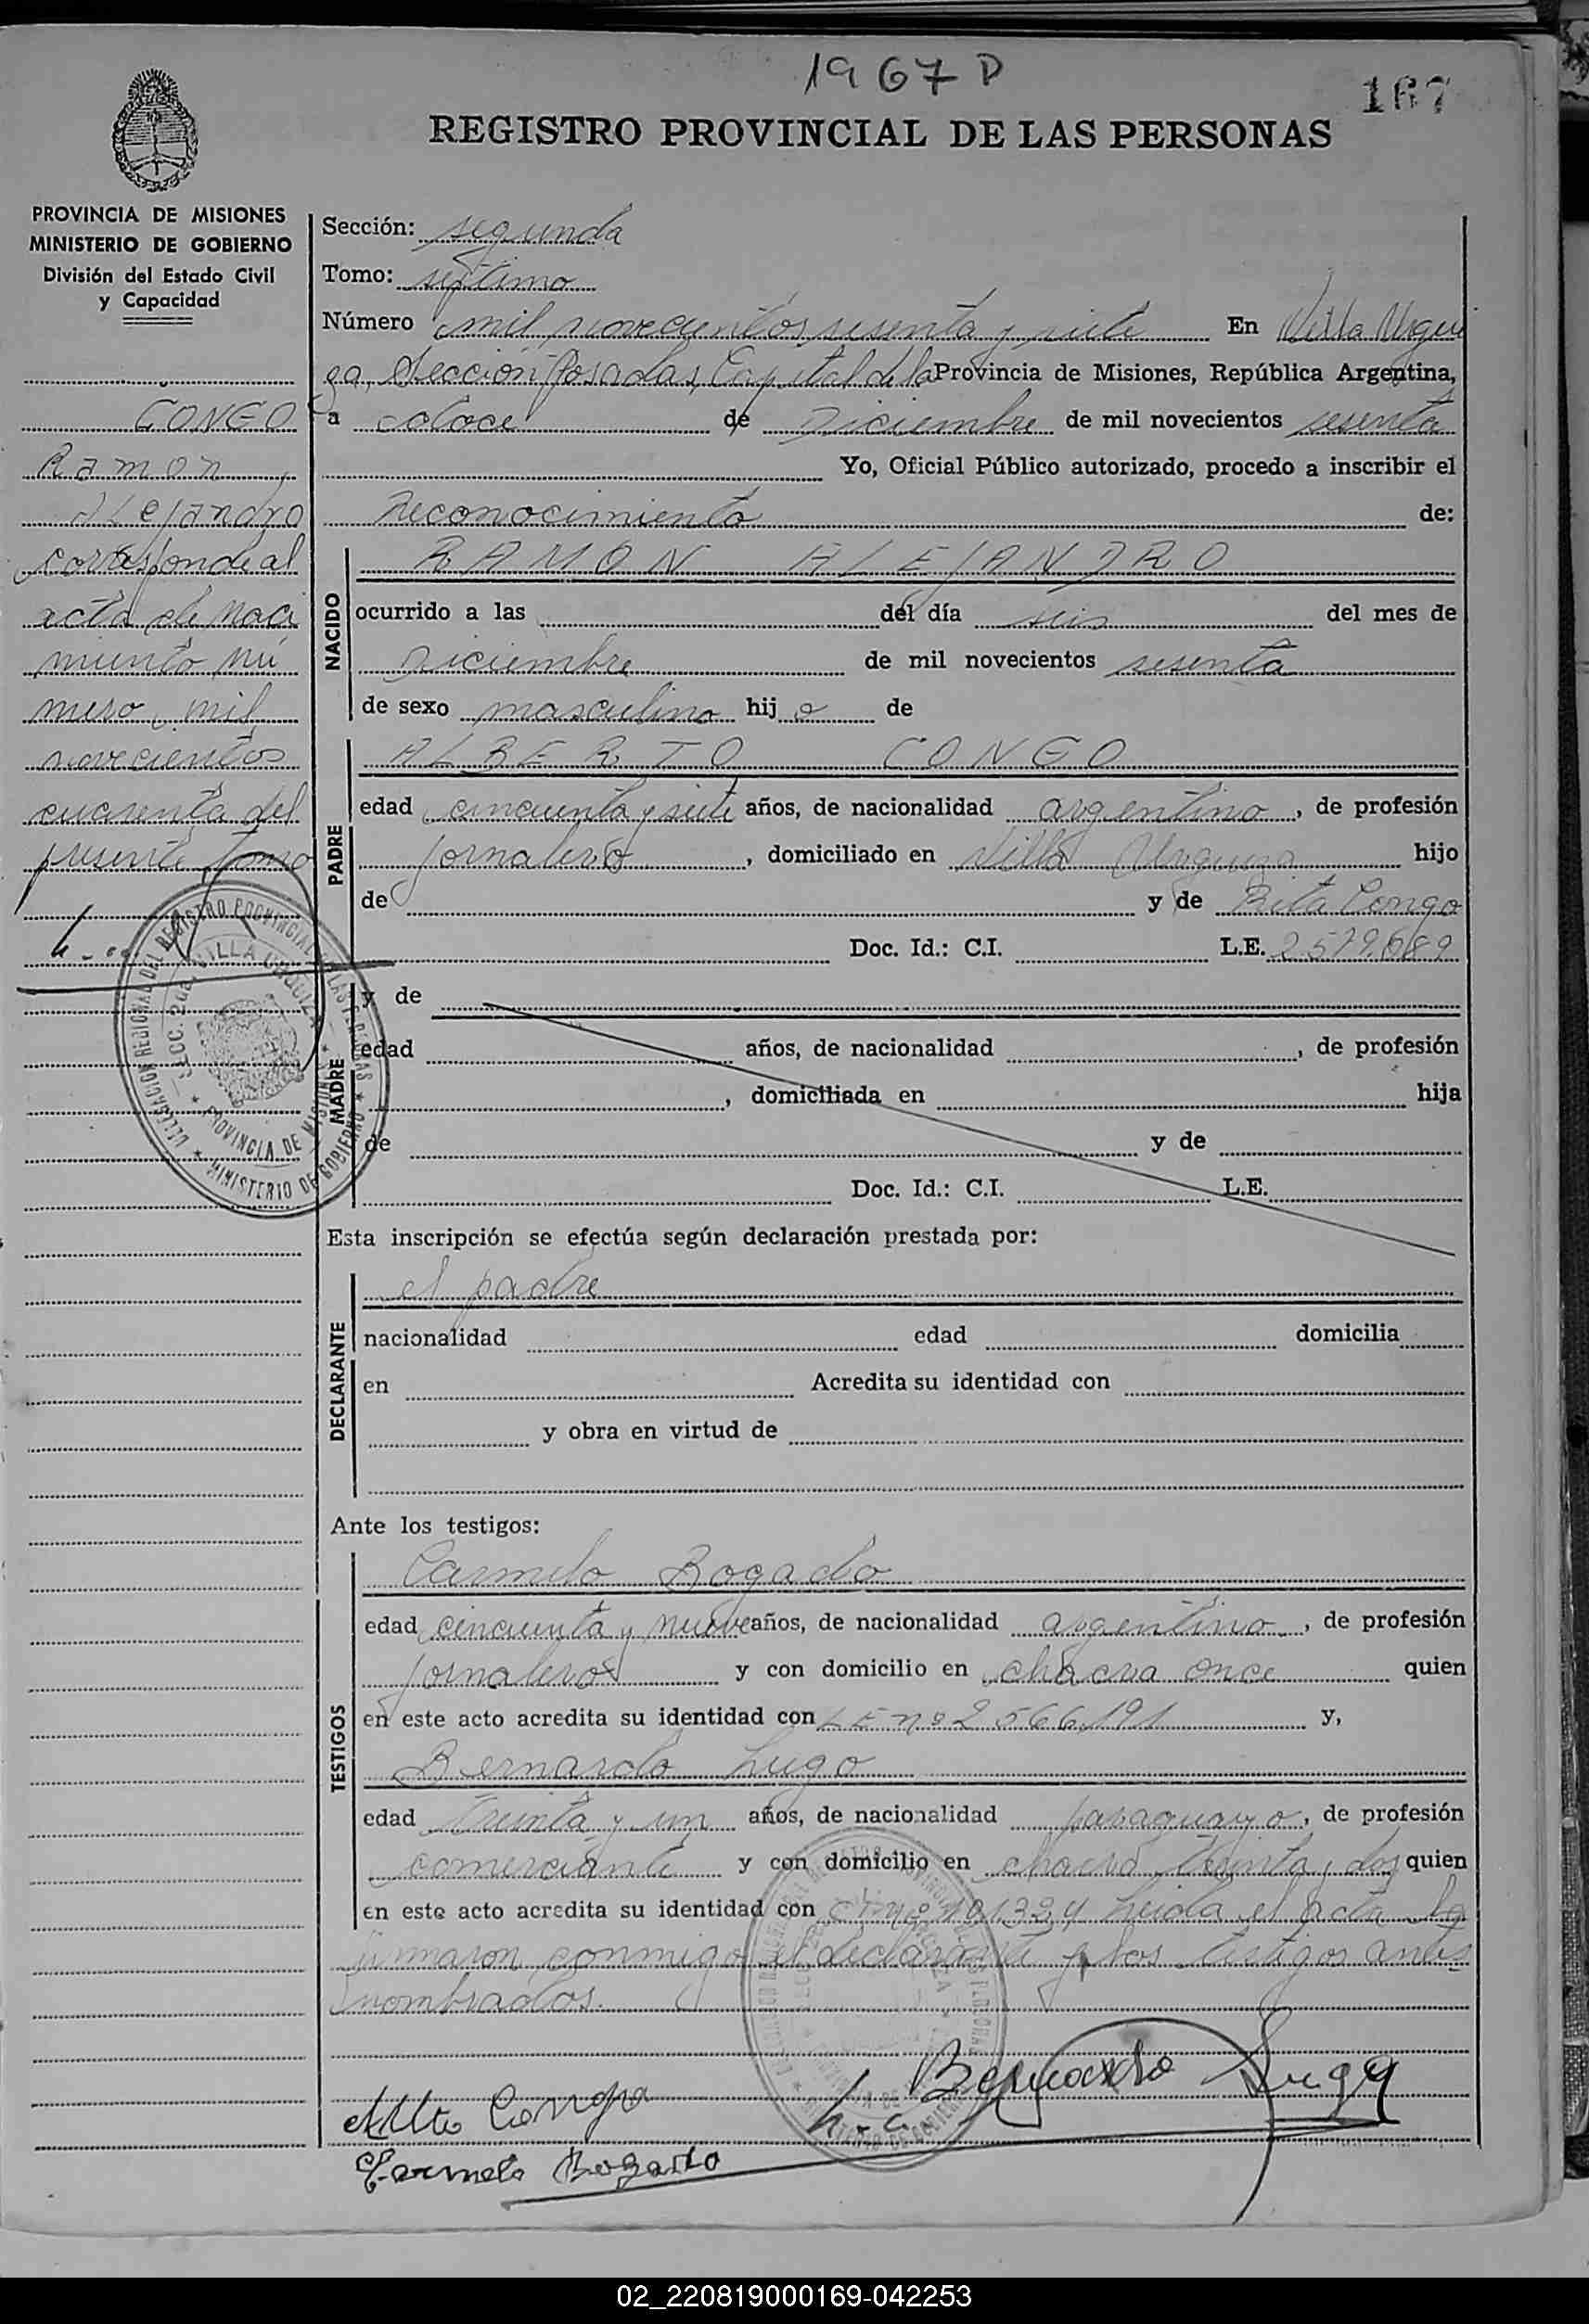 1967 D
167
REGISTRO PROVINCIAL DE LAS PERSONAS
PROVINCIA DE MISIONES
MINISTERIO DE GOBIERNO
División del Estado Civil
y Capacidad
CONGO
Ramon
Alejandro
corresponde al
acta de naci
miento nú
mero mil
novecientos
cuarenta del
presente tomo
DELEGACION REGIONAL DEL REGISTRO PROVINCIAL DE LAS PERSONAS
SECC. 2da. VILLA URQUIZA
PROVINCIA DE MISIONES
MINISTERIO DE GOBIERNO
Sección: segunda
Tomo: septimo
Número mil novecientos sesenta y siete En Villa Urqui
za, Sección Posadas, Capital de la Provincia de Misiones, República Argentina,
a doce de Diciembre de mil novecientos sesenta
Yo, Oficial Público autorizado, procedo a inscribir el
reconocimiento de:
NACIDO
RAMON ALEJANDRO
ocurrido a las del día seis del mes de
Diciembre de mil novecientos sesenta
de sexo masculino hijo de
PADRE
ALBERTO CONGO
edad cincuenta y siete años, de nacionalidad argentino, de profesión
jornalero, domiciliado en Villa Urquiza hijo
de y de Rita Congo
Doc. Id.: C.I. L.E. 2.579.689
MADRE
y de
edad años, de nacionalidad , de profesión
, domiciliada en hija
de y de
Doc. Id.: C.I. L.E.
Esta inscripción se efectúa según declaración prestada por:
DECLARANTE
el padre
nacionalidad edad domicilia
en Acredita su identidad con
y obra en virtud de
Ante los testigos:
TESTIGOS
Carmelo Bogado
edad cincuenta y nueve años, de nacionalidad argentino, de profesión
jornalero y con domicilio en chacra once quien
en este acto acredita su identidad con LE nº 2566191 y,
Bernardo Lugo
edad treinta y un años, de nacionalidad paraguayo, de profesión
comerciante y con domicilio en chacra treinta y dos quien
en este acto acredita su identidad con CI nº 101324 Leida el acta la
firmaron conmigo el declarante y los testigos antes
nombrados.
Bernardo Lugo
Alberto Congo
Carmelo Bogado
02_220819000169-042253